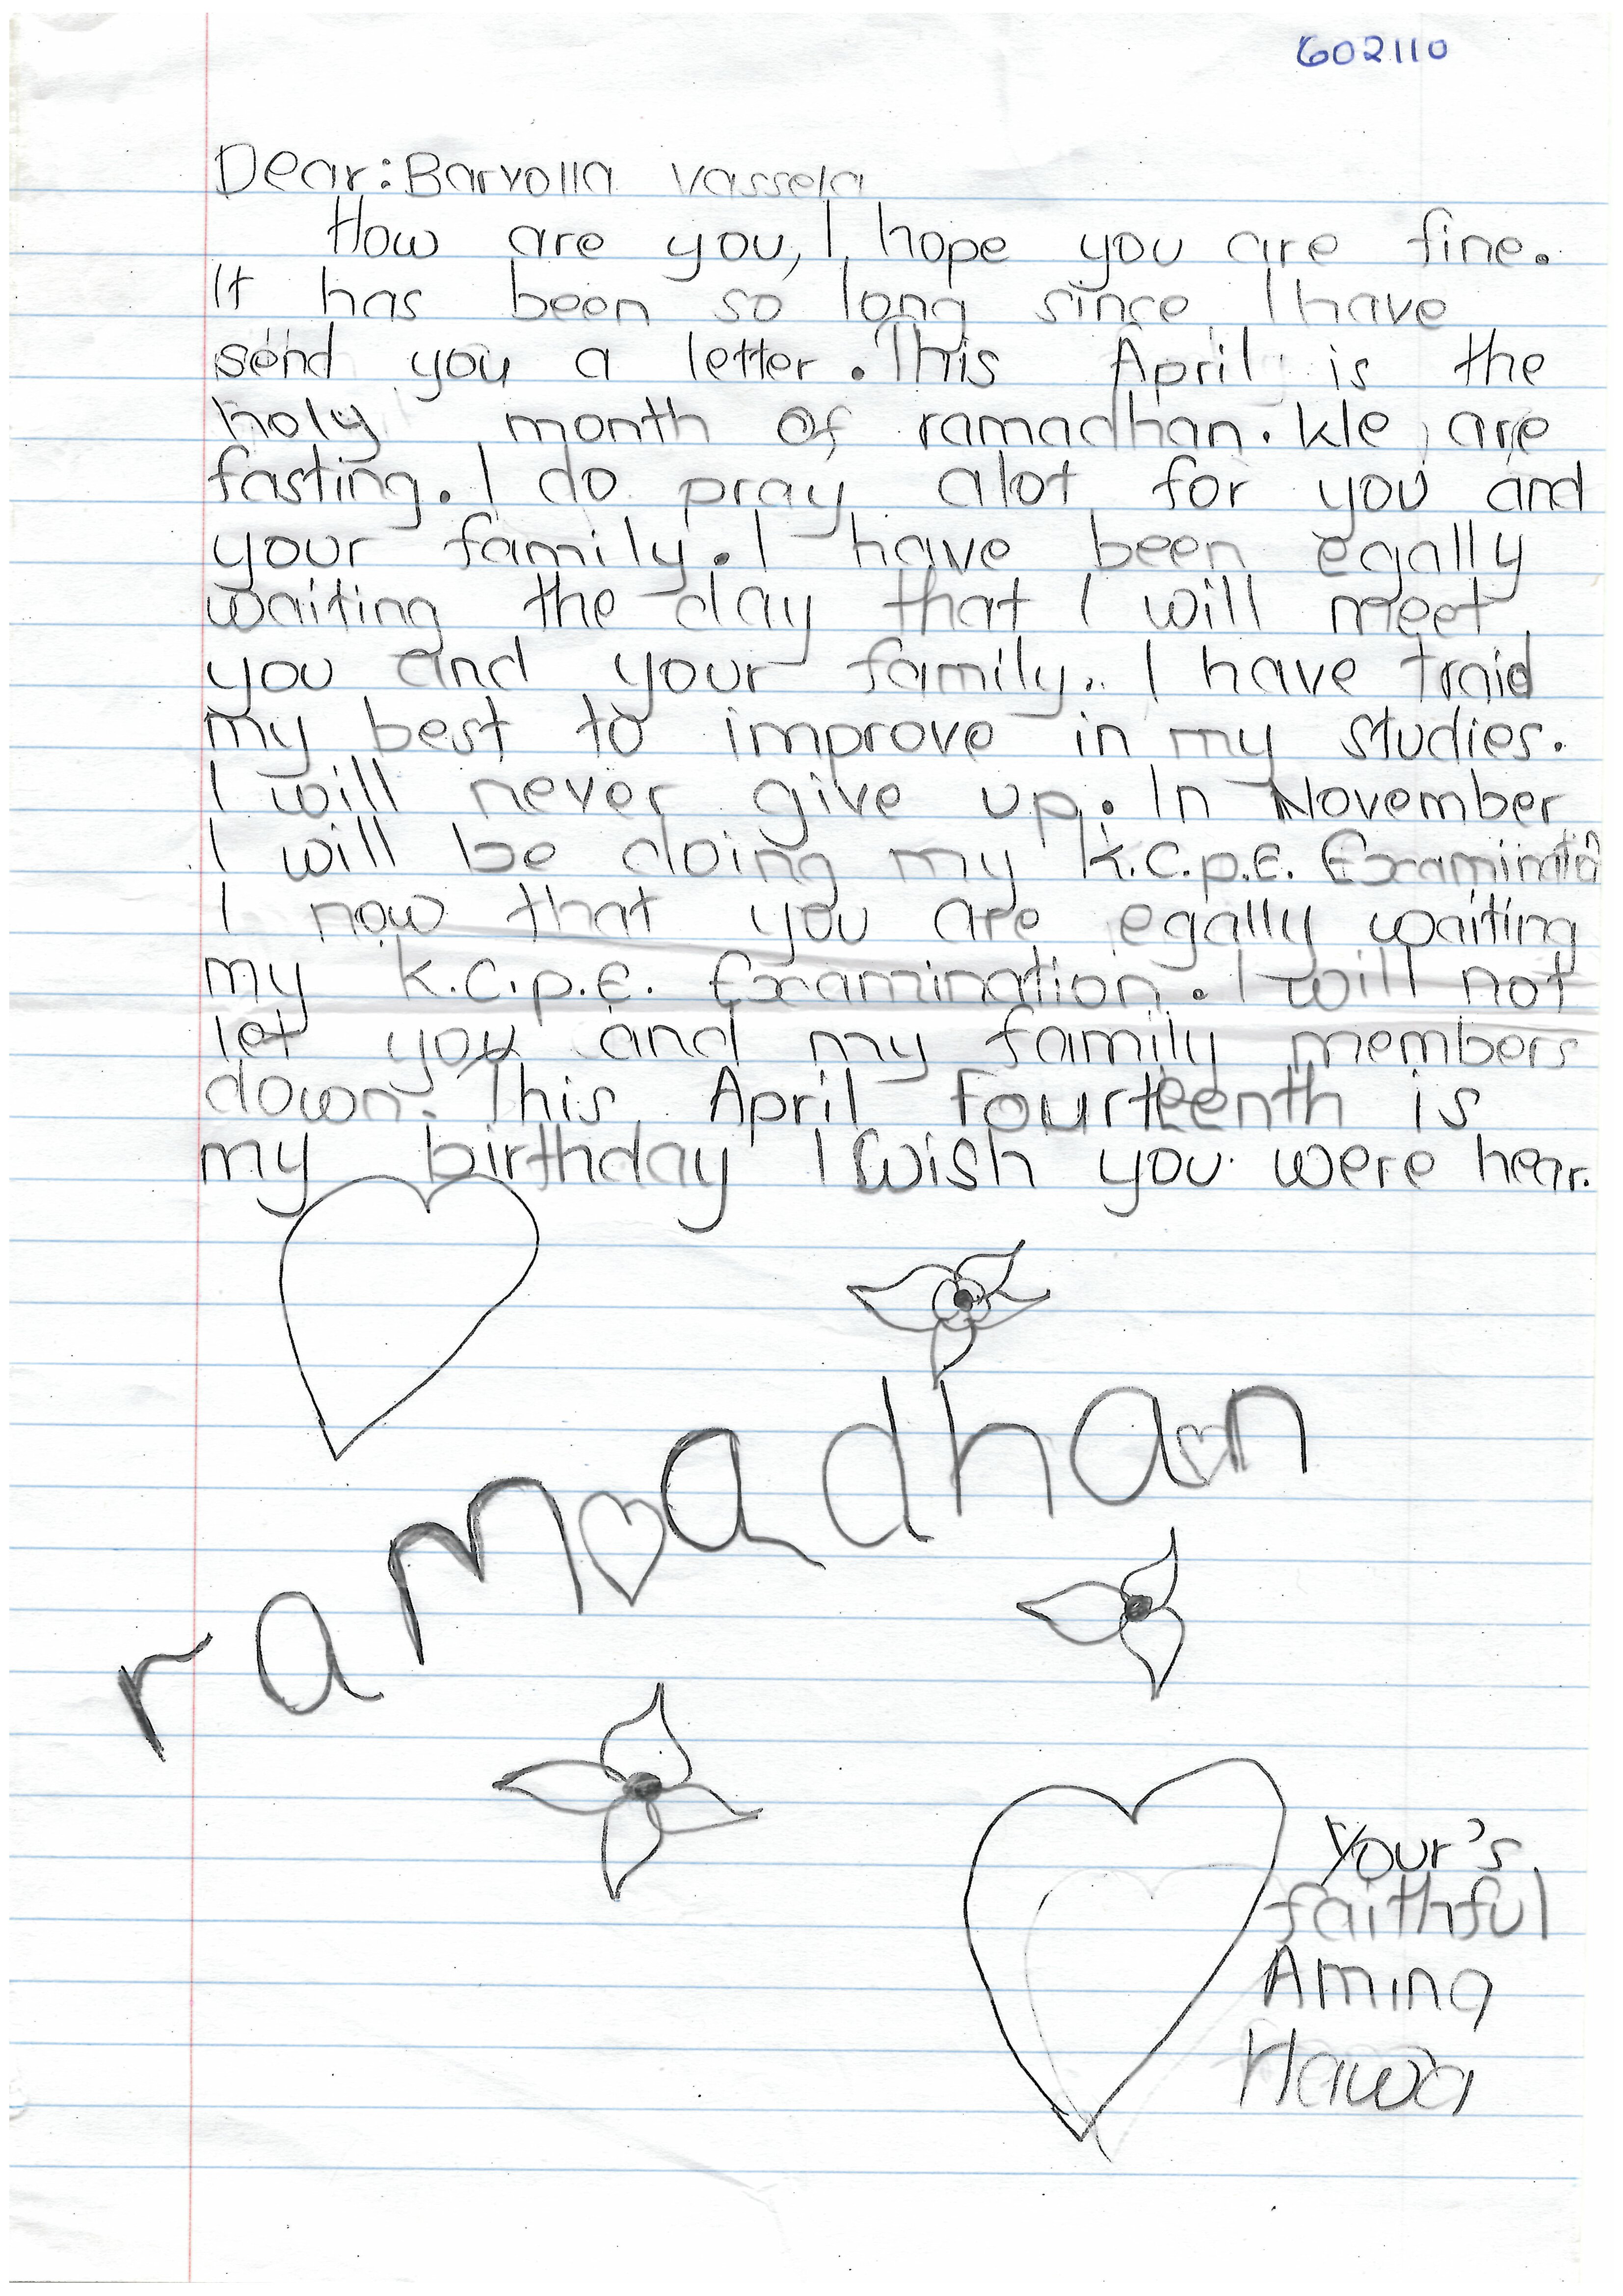 602110
Dear: Barvolla Vassela
How are you, I hope you are fine.
It has been so long since I have
send you a letter. This April is the
holy month of ramadhan. We are
fasting. I do pray alot for you and
your family. I have been egally
waiting the day that I will meet
you and your family. I have traid
my best to improve in my studies.
I will never give up. In November
I will be doing my K.C.P.E. Examination
I now that you are egally waiting
my K.C.P.E. Examination. I will not
let you and my family members
down. This April Fourteenth is
my birthday I Wish you were hear.
ramadhan
Your's
faithful
Amina
Hawa